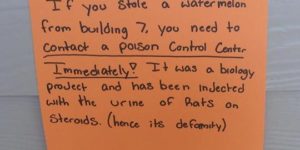 If you stole a watermelon
from building 7, you need to
contact a poison control center
Immediately! It was a biology
project and has been injected
with the urine of Rats on
steroids. (hence its defomity)